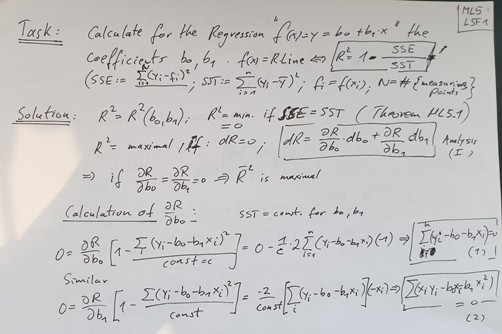 ML5:
LSF1
Task: Calculate for the Regression "f(x)=y = b₀ + b₁·x" the
coefficients b₀, b₁. f(x)=RLine ⇔ R² = 1 - SSE/SST
(SSE := ∑(yᵢ-fᵢ)²; SST := ∑(yᵢ-ȳ)²; fᵢ = f(xᵢ), N=#{measuring Points}
Solution: R² = R²(b₀,b₁); R² = min. = 0 if SSE = SST (Theorem ML5.1)
R² = maximal, if: dR=0; dR = ∂R/∂b₀ · db₀ + ∂R/∂b₁ db₁ Analysis (I)
⇒ if ∂R/∂b₀ = ∂R/∂b₁ = 0 ⇒ R² is maximal
Calculation of ∂R/∂b₀: SST = const. for b₀, b₁
0 = ∂R/∂b₀ [1 - ∑(yᵢ-b₀-b₁xᵢ)²/const=c] = 0 - 1/c · 2∑(yᵢ-b₀-b₁xᵢ)(-1) ⇒ ∑(yᵢ-b₀-b₁xᵢ)=0 (1) !
Similar
0 = ∂R/∂b₁ [1 - ∑(yᵢ-b₀-b₁xᵢ)²/const] = -2/const [∑(yᵢ-b₀-b₁xᵢ)](-xᵢ) ⇒ ∑(xᵢyᵢ-b₀xᵢ-b₁xᵢ²) = 0 (2)